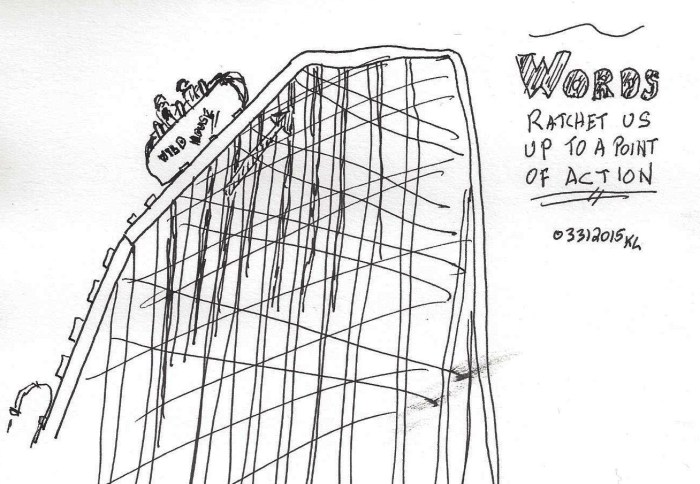 WORDS
RATCHET US
UP TO A POINT
OF ACTION
03312015 KL